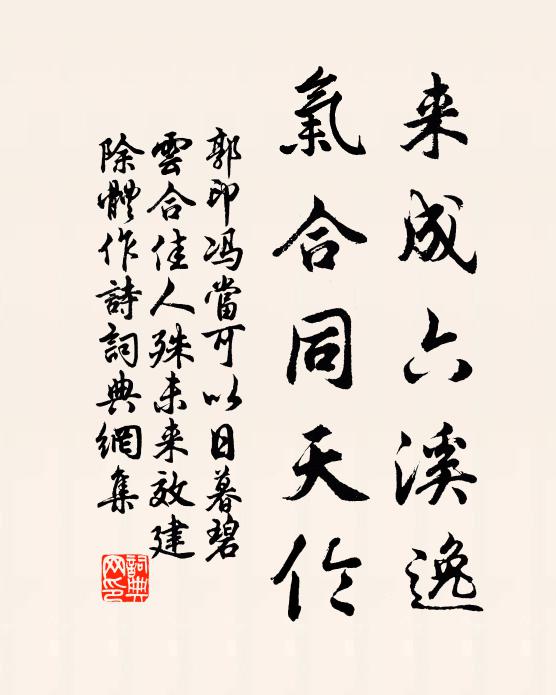 来成六溪逸
氣合同天伦
郭印冯當可以日暮碧
雲合佳人殊未来效建
除體作詩詞典網集
詞典
网印